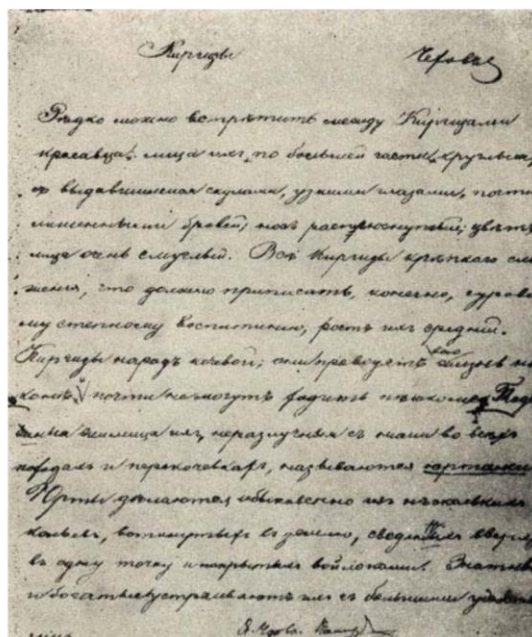 Киргизы Чеховъ
Рѣдко можно встрѣтить между Киргизами
красавца: лица ихъ по большей части круглыя,
съ выдавшимися скулами, узкими глазами, почти
лишенными бровей; носъ расплюснутый; цвѣтъ
лица очень смуглый. Всѣ Киргизы крѣпкаго сло
женія, что должно приписать, конечно, сурово
му степному воспитанію, ростъ ихъ средній.
Киргизы народъ кочевой; они проводятъ всю жизнь на
конѣ, и почти не могутъ ходить пѣшкомъ.
жилища ихъ, неразлучныя съ ними во всѣхъ
и перекочевкахъ, называются юртами.
Юрты дѣлаются обыкновенно изъ нѣсколькихъ
кольевъ, воткнутыхъ въ землю, сведенныхъ вверху
въ одну точку и покрытыхъ войлоками. Знатные
и богатые устраиваютъ ихъ съ большими